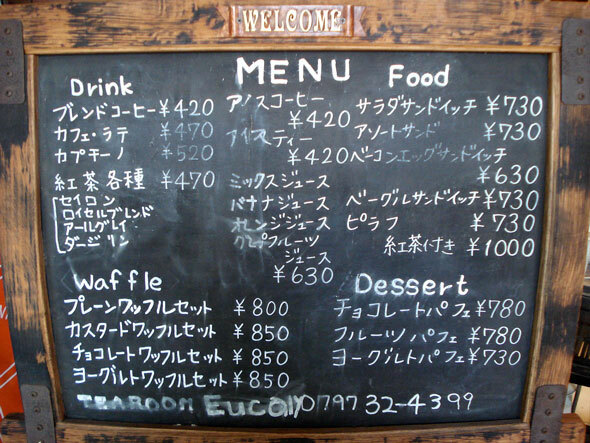 WELCOME
MENU
Drink
ブレンドコーヒー ¥420
カフェ・ラテ ¥470
カプチーノ ¥520
紅茶各種 ¥470
セイロン
ロイヤルブレンド
アールグレイ
ダージリン
アイスコーヒー
¥420
アイスティー
¥420
ミックスジュース
バナナジュース
オレンジジュース
グレープフルーツ
ジュース
¥630
Food
サラダサンドイッチ ¥730
アソートサンド ¥730
ベーコンエッグサンドイッチ
¥630
ベーグルサンドイッチ ¥730
ピラフ ¥730
紅茶付き ¥1000
Waffle
プレーンワッフルセット ¥800
カスタードワッフルセット ¥850
チョコレートワッフルセット ¥850
ヨーグルトワッフルセット ¥850
Dessert
チョコレートパフェ ¥780
フルーツパフェ ¥780
ヨーグルトパフェ ¥730
TEAROOM Eucaly 0797 32-4399